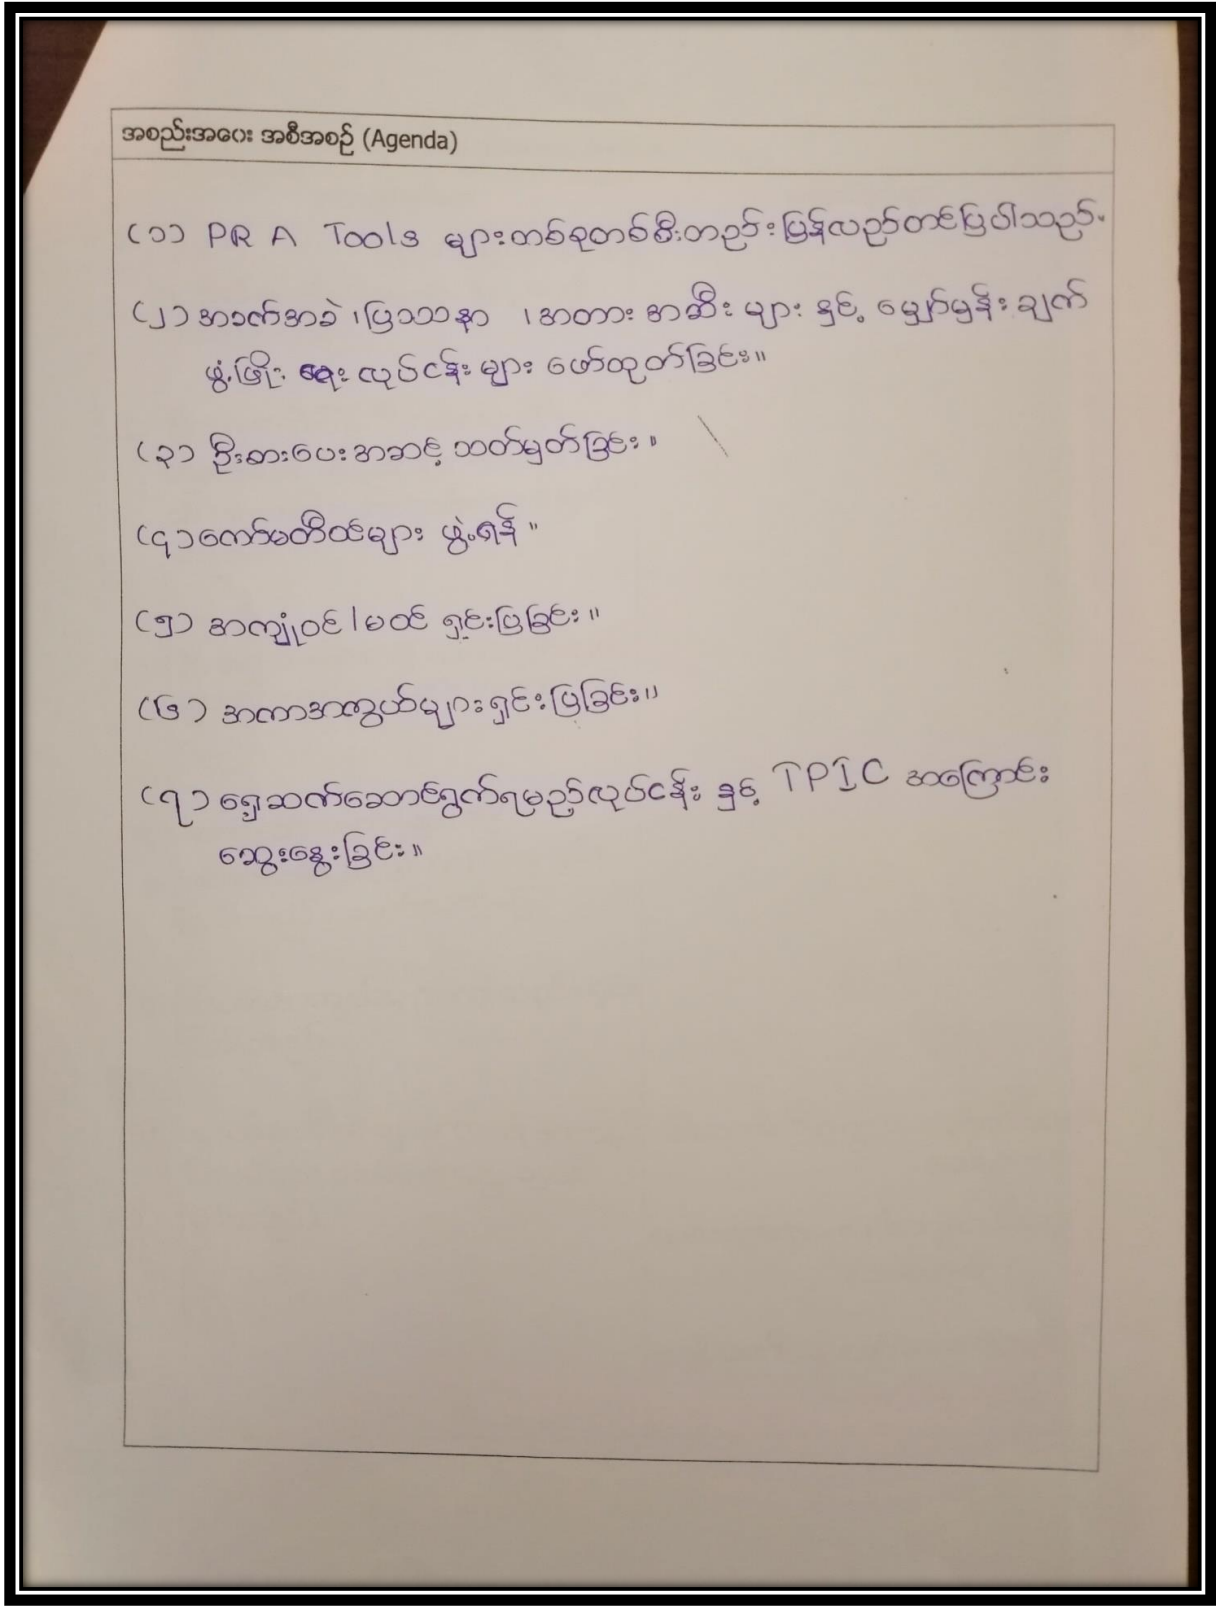 အစည်းအဝေး အစီအစဉ် (Agenda)
(၁) PRA Tools များတစ်ခုတစ်စီးတည်းပြန်လည်တင်ပြပါသည်။
(၂) အခက်အခဲ ၊ပြဿနာ ၊အတားအဆီး များ နှင့် မျှော်မှန်းချက်
ဖွံ့ဖြိုး ရေး လုပ်ငန်းများ ဖော်ထုတ်ခြင်း။
(၃) ဦးစားပေးအဆင့် သတ်မှတ်ခြင်း။
(၄) ကော်မတီဝင်များ ဖွဲ့ရန် ။
(၅) အကျုံးဝင်/မဝင် ရှင်းပြခြင်း။
(၆) အကာအကွယ်များရှင်းပြခြင်း။
(၇) ရှေ့ဆက်ဆောင်ရွက်ရမည့်လုပ်ငန်း နှင့် TPIC အကြောင်း
ဆွေးနွေးခြင်း။